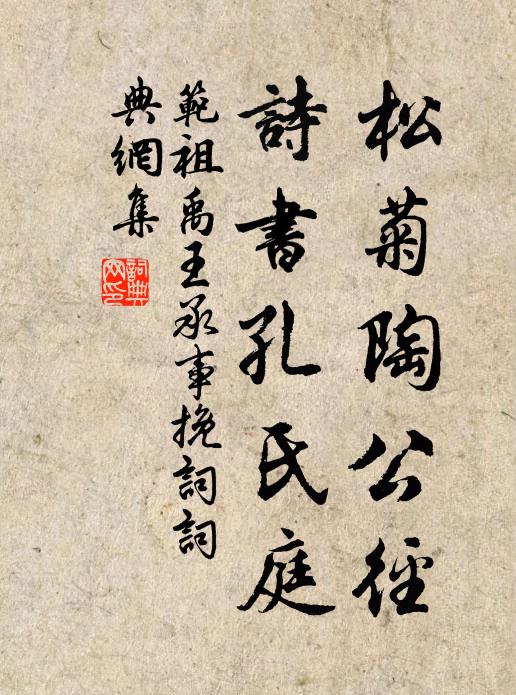 松菊陶公徑
詩書孔氏庭
範祖禹王承事挽詞詞
典網集
詞典網印